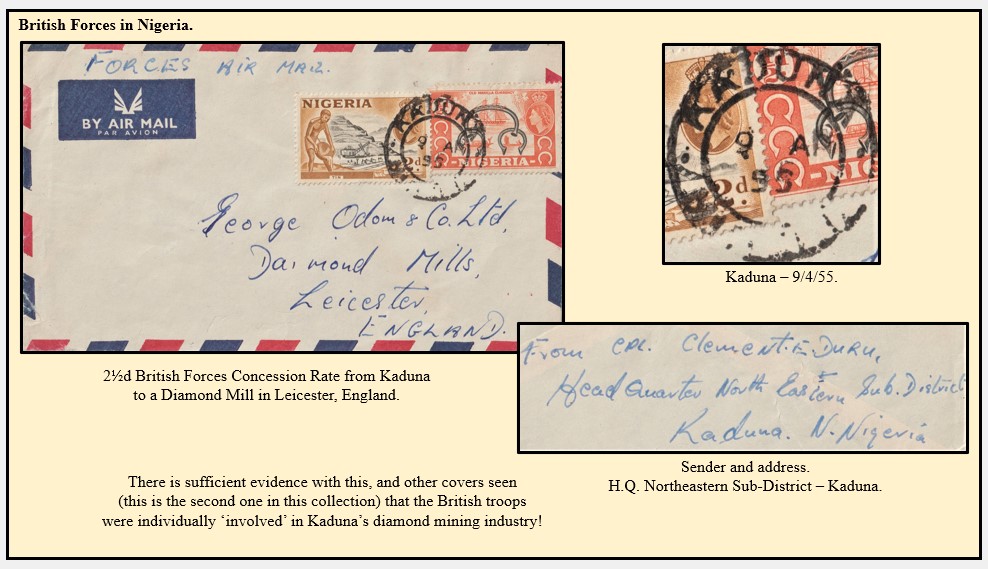 British Forces in Nigeria.
FORCES AIR MAIL
BY AIR MAIL
PAR AVION
NIGERIA
2d
KADUNA
9 AP
55
-NIGERIA-
George Odom & Co. Ltd,
Daimond Mills,
Leicester,
ENGLAND.
2½d British Forces Concession Rate from Kaduna
to a Diamond Mill in Leicester, England.
KADUNA
9 AP
55
2d
Kaduna – 9/4/55.
From CPL. Clement.E Duru,
Head Quarter North Eastern Sub.District
Kaduna. N. Nigeria
Sender and address.
H.Q. Northeastern Sub-District – Kaduna.
There is sufficient evidence with this, and other covers seen
(this is the second one in this collection) that the British troops
were individually ‘involved’ in Kaduna’s diamond mining industry!